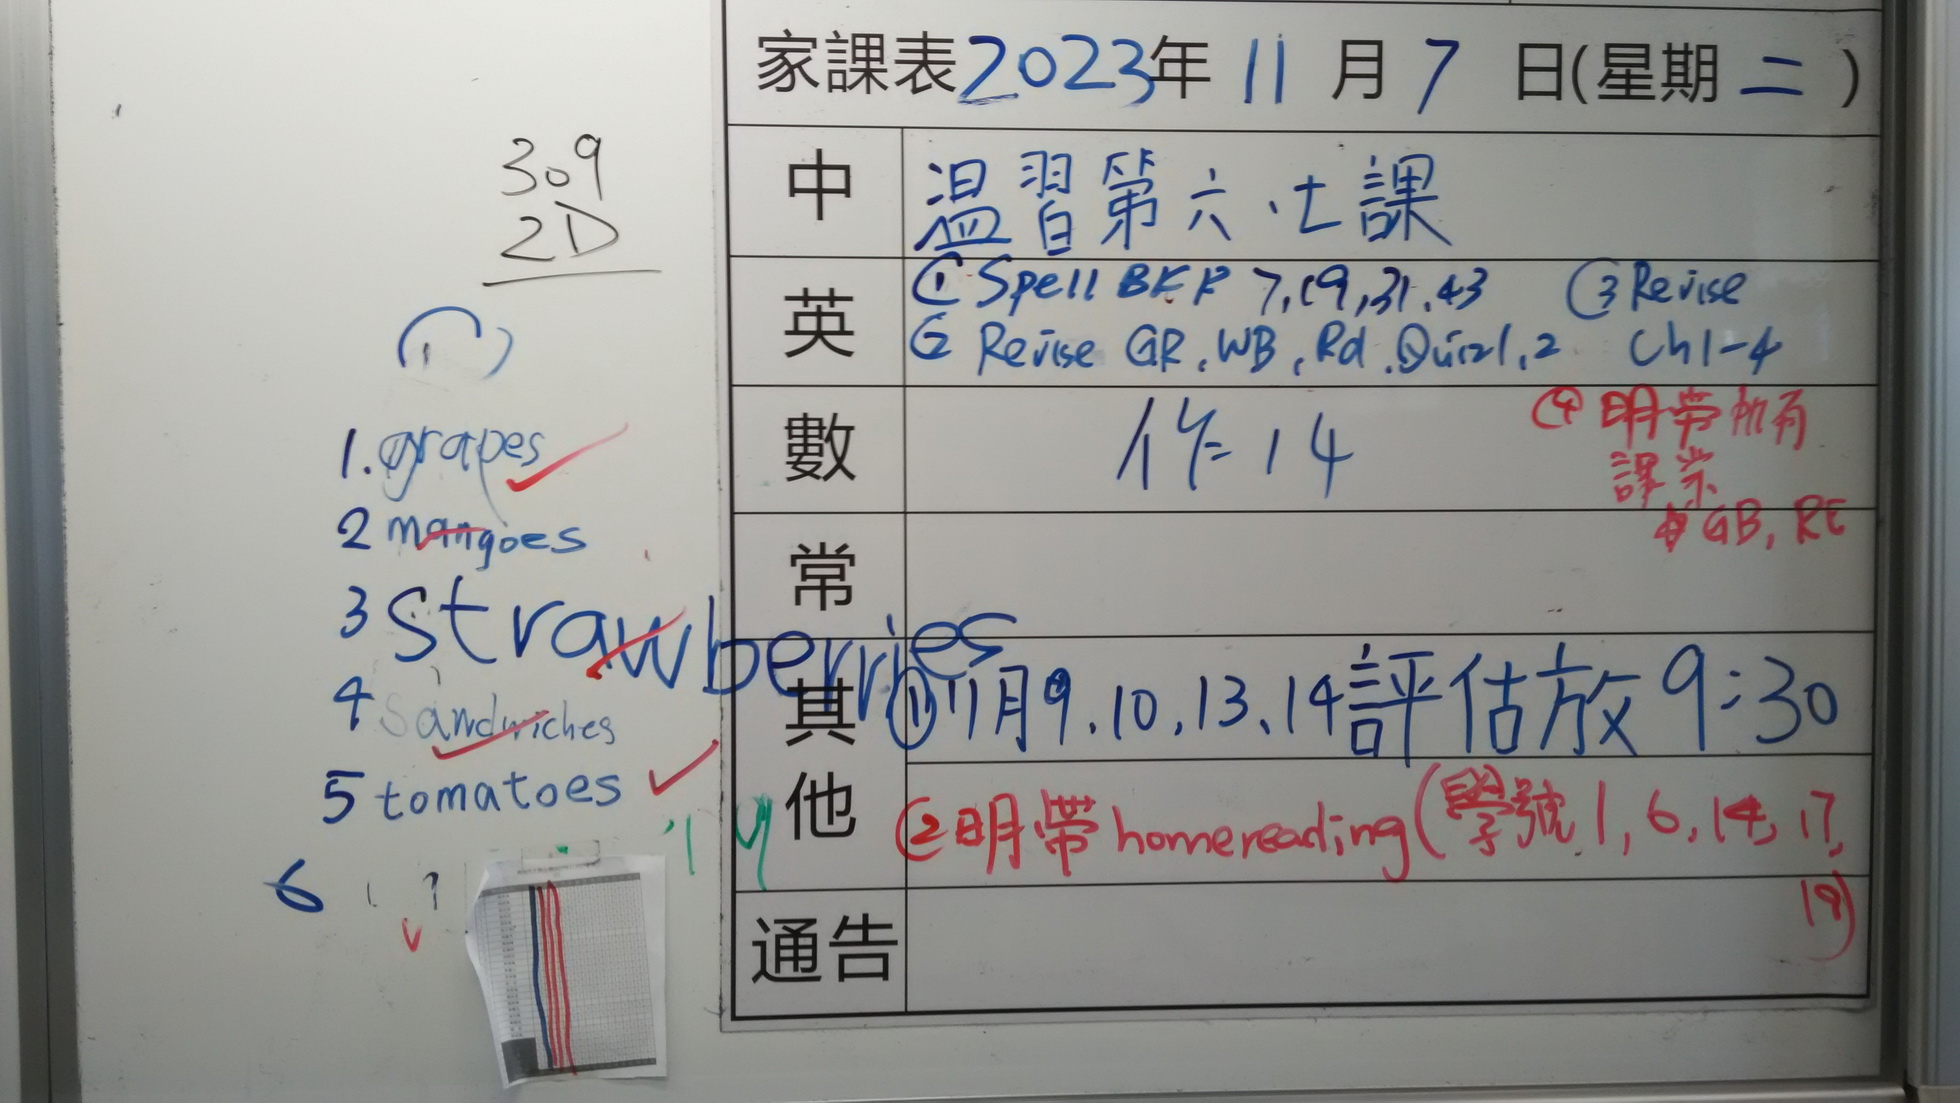 309
2D
1. grapes
2 mangoes
3 strawberries
4 Sandwiches
5 tomatoes
6
家課表2023年11月7日(星期二)
中 温習第六、七課
英 ① Spell BK P 7,19,31,43 ③ Revise
② Revise GR, WB, Rd, Quiz1,2 Ch1-4
數 作14
④ 明帶所有
課業
GB, RE
常
其他 ① 11月9、10、13、14評估放9:30
② 明帶homereading(學號1, 6, 14, 17,
19)
通告